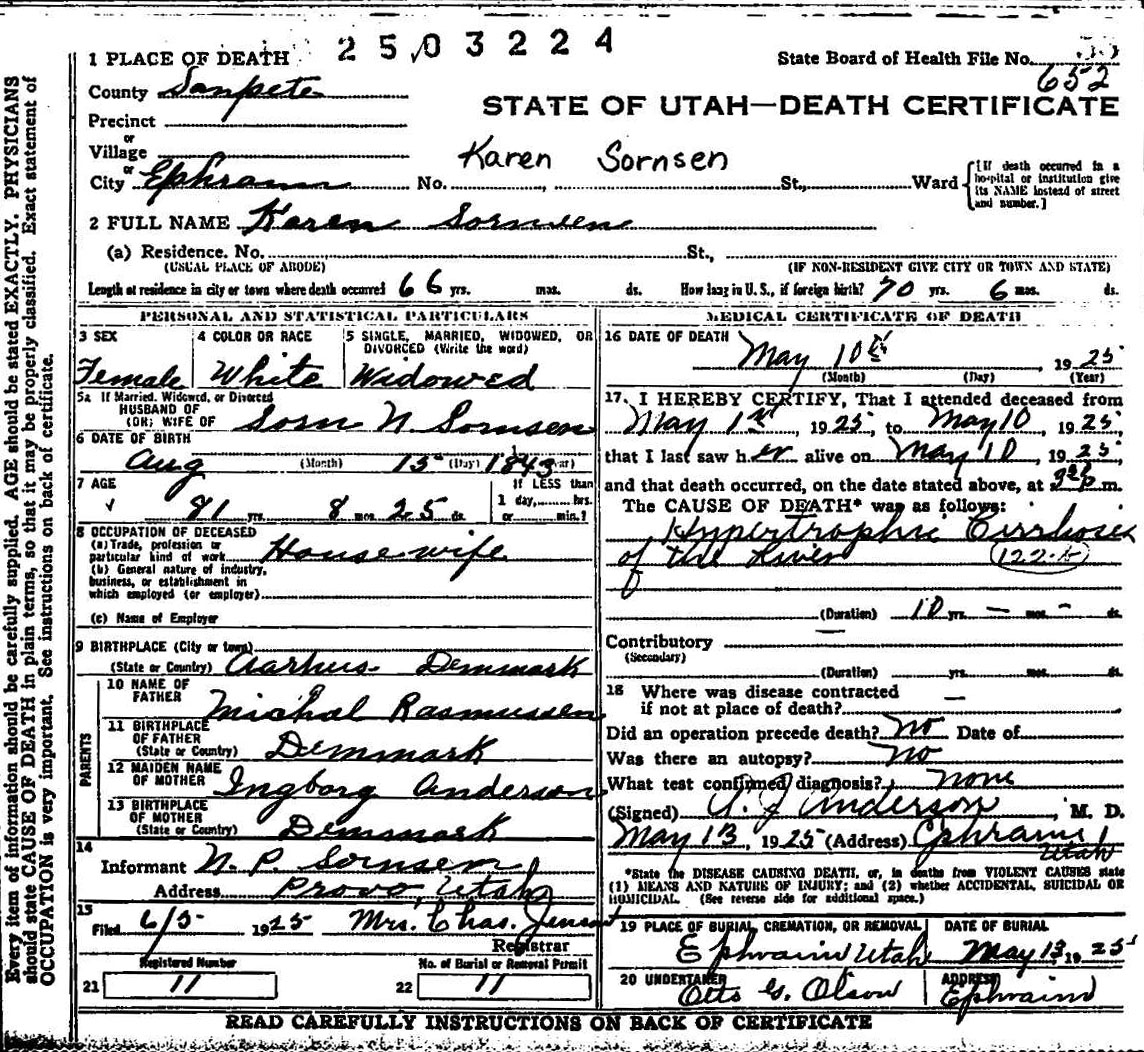 2503224
1 PLACE OF DEATH
State Board of Health File No.
652
County Sanpete
STATE OF UTAH—DEATH CERTIFICATE
Precinct
or
Village
Karen Sornsen
or
City Ephraim No. , St., Ward
[If death occurred in a hospital or institution give its NAME instead of street and number.]
2 FULL NAME Karen Sornsen
(a) Residence. No. St.,
(USUAL PLACE OF ABODE) (IF NON-RESIDENT GIVE CITY OR TOWN AND STATE)
Length of residence in city or town where death occurred 66 yrs. mos. ds. How long in U. S., if foreign birth? 70 yrs. 6 mos. ds.
PERSONAL AND STATISTICAL PARTICULARS
3 SEX
Female
4 COLOR OR RACE
White
5 SINGLE, MARRIED, WIDOWED, OR DIVORCED (Write the word)
Widowed
5a If Married, Widowed, or Divorced
HUSBAND OF
(OR) WIFE OF Sorn N. Sornsen
6 DATE OF BIRTH
Aug (Month) 15 (Day) 1843 (Year)
7 AGE
81 yrs. 8 mos. 25 ds.
If LESS than
1 day, hrs.
or min.?
8 OCCUPATION OF DECEASED
(a) Trade, profession or
particular kind of work Housewife
(b) General nature of industry,
business, or establishment in
which employed (or employer)
(c) Name of Employer
9 BIRTHPLACE (City or town)
(State or Country) Aarhus Denmark
PARENTS
10 NAME OF
FATHER Michal Rasmussen
11 BIRTHPLACE
OF FATHER
(State or Country) Denmark
12 MAIDEN NAME
OF MOTHER Ingborg Anderson
13 BIRTHPLACE
OF MOTHER
(State or Country) Denmark
14
Informant N. P. Sornsen
Address Provo, Utah
15
Filed 6/5 1925 Mrs. Chas. Jensen
Registrar
Registered Number
21 11
No. of Burial or Removal Permit
22 11
MEDICAL CERTIFICATE OF DEATH
16 DATE OF DEATH
May 10th, 1925
(Month) (Day) (Year)
17. I HEREBY CERTIFY, That I attended deceased from
May 1st, 1925, to May 10, 1925,
that I last saw her alive on May 10, 1925,
and that death occurred, on the date stated above, at m.
The CAUSE OF DEATH* was as follows:
Hypertrophic Cirrhosis
of the Liver
(Duration) 10 yrs. — mos. - ds.
Contributory —
(Secondary)
(Duration) yrs. mos. ds.
18 Where was disease contracted
if not at place of death? —
Did an operation precede death? No Date of
Was there an autopsy? No
What test confirmed diagnosis? none
(Signed) Anderson, M. D.
May 13, 1925 (Address) Ephraim
Utah
*State the DISEASE CAUSING DEATH, or, in deaths from VIOLENT CAUSES state
(1) MEANS AND NATURE OF INJURY; and (2) whether ACCIDENTAL, SUICIDAL OR
HOMICIDAL. (See reverse side for additional space.)
19 PLACE OF BURIAL, CREMATION, OR REMOVAL
Ephraim Utah
DATE OF BURIAL
May 13 1925
20 UNDERTAKER
Otto G. Olson
ADDRESS
Ephraim
READ CAREFULLY INSTRUCTIONS ON BACK OF CERTIFICATE
Every item of information should be carefully supplied. AGE should be stated EXACTLY. PHYSICIANS
should state CAUSE OF DEATH in plain terms, so that it may be properly classified. Exact statement of
OCCUPATION is very important. See instructions on back of certificate.